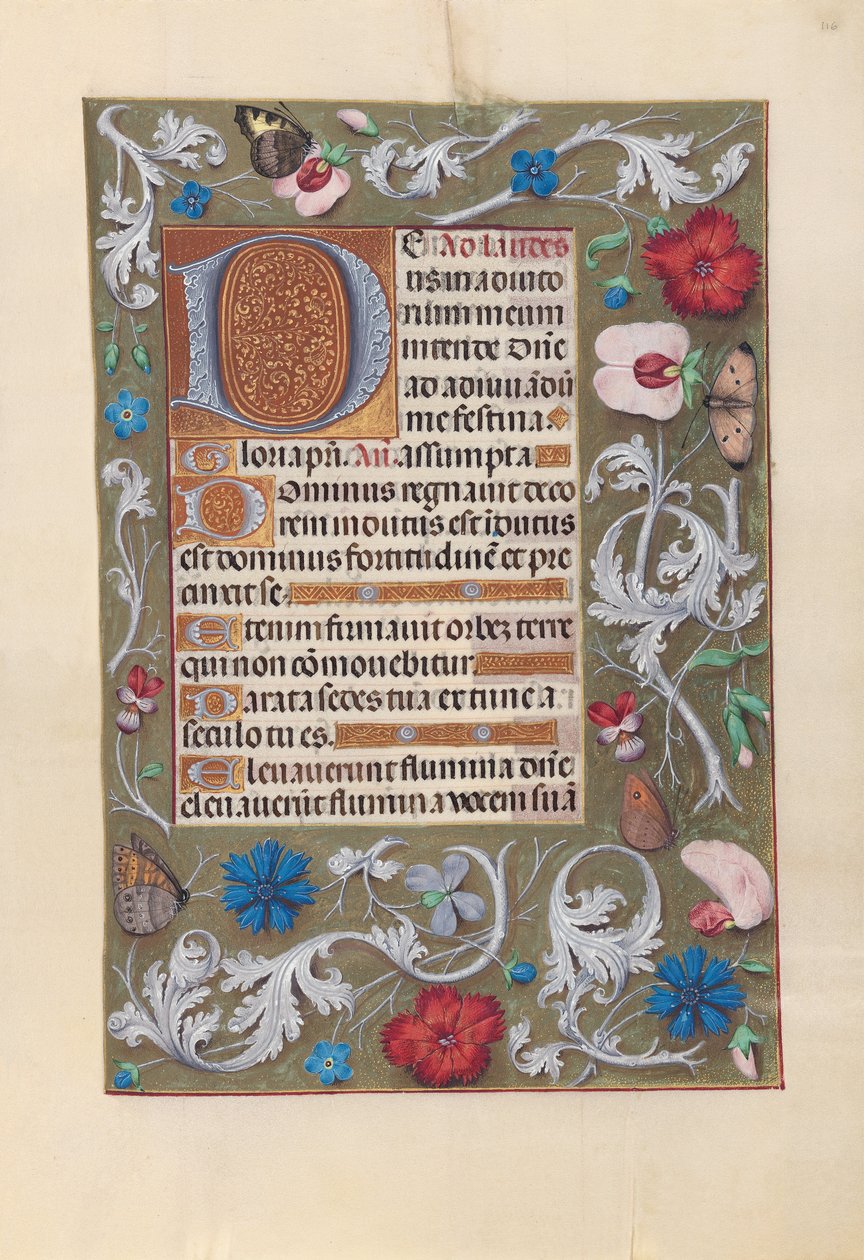 116
DE Ad laudes
us in adiuto
rium meum
intende Dn̄e
ad adiuuādū
me festina.
Gloria pr̄i. Añ. assumpta
Dominus regnauit deco
rem indutus est īdutus
est dominus fortitudinē et pre
cinxit se.
Etenim firmauit orbez terre
qui non cōmouebitur
Parata sedes tua ex tunc a
seculo tu es.
Eleuauerunt flumina dn̄e
eleuauerūt flumina vocem suā